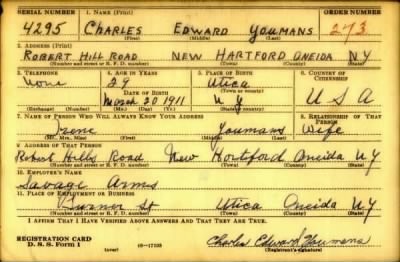 SERIAL NUMBER 1. NAME (Print) ORDER NUMBER
4295 CHARLES EDWARD YOUMANS 273
(First) (Middle) (Last)
2. ADDRESS (Print)
ROBERT HILL ROAD NEW HARTFORD ONEIDA NY
(Number and street or R. F. D. number) (Town) (County) (State)
3. TELEPHONE 4. AGE IN YEARS 5. PLACE OF BIRTH 6. COUNTRY OF CITIZENSHIP
None 29 Utica
DATE OF BIRTH (Town or county)
March 20 1911 N Y U S A
(Exchange) (Number) (Mo.) (Day) (Yr.) (State or country)
7. NAME OF PERSON WHO WILL ALWAYS KNOW YOUR ADDRESS 8. RELATIONSHIP OF THAT PERSON
Irene Youmans Wife
(Mr., Mrs., Miss) (First) (Middle) (Last)
9. ADDRESS OF THAT PERSON
Robert Hills Road New Hartford Oneida NY
(Number and street or R. F. D. number) (Town) (County) (State)
10. EMPLOYER'S NAME
Savage Arms
11. PLACE OF EMPLOYMENT OR BUSINESS
St Utica Oneida NY
(Number and street or R. F. D. number) (Town) (County) (State)
I AFFIRM THAT I HAVE VERIFIED ABOVE ANSWERS AND THAT THEY ARE TRUE.
REGISTRATION CARD
D. S. S. Form 1 (over) 16—17105 Charles Edward Youmans
(Registrant's signature)